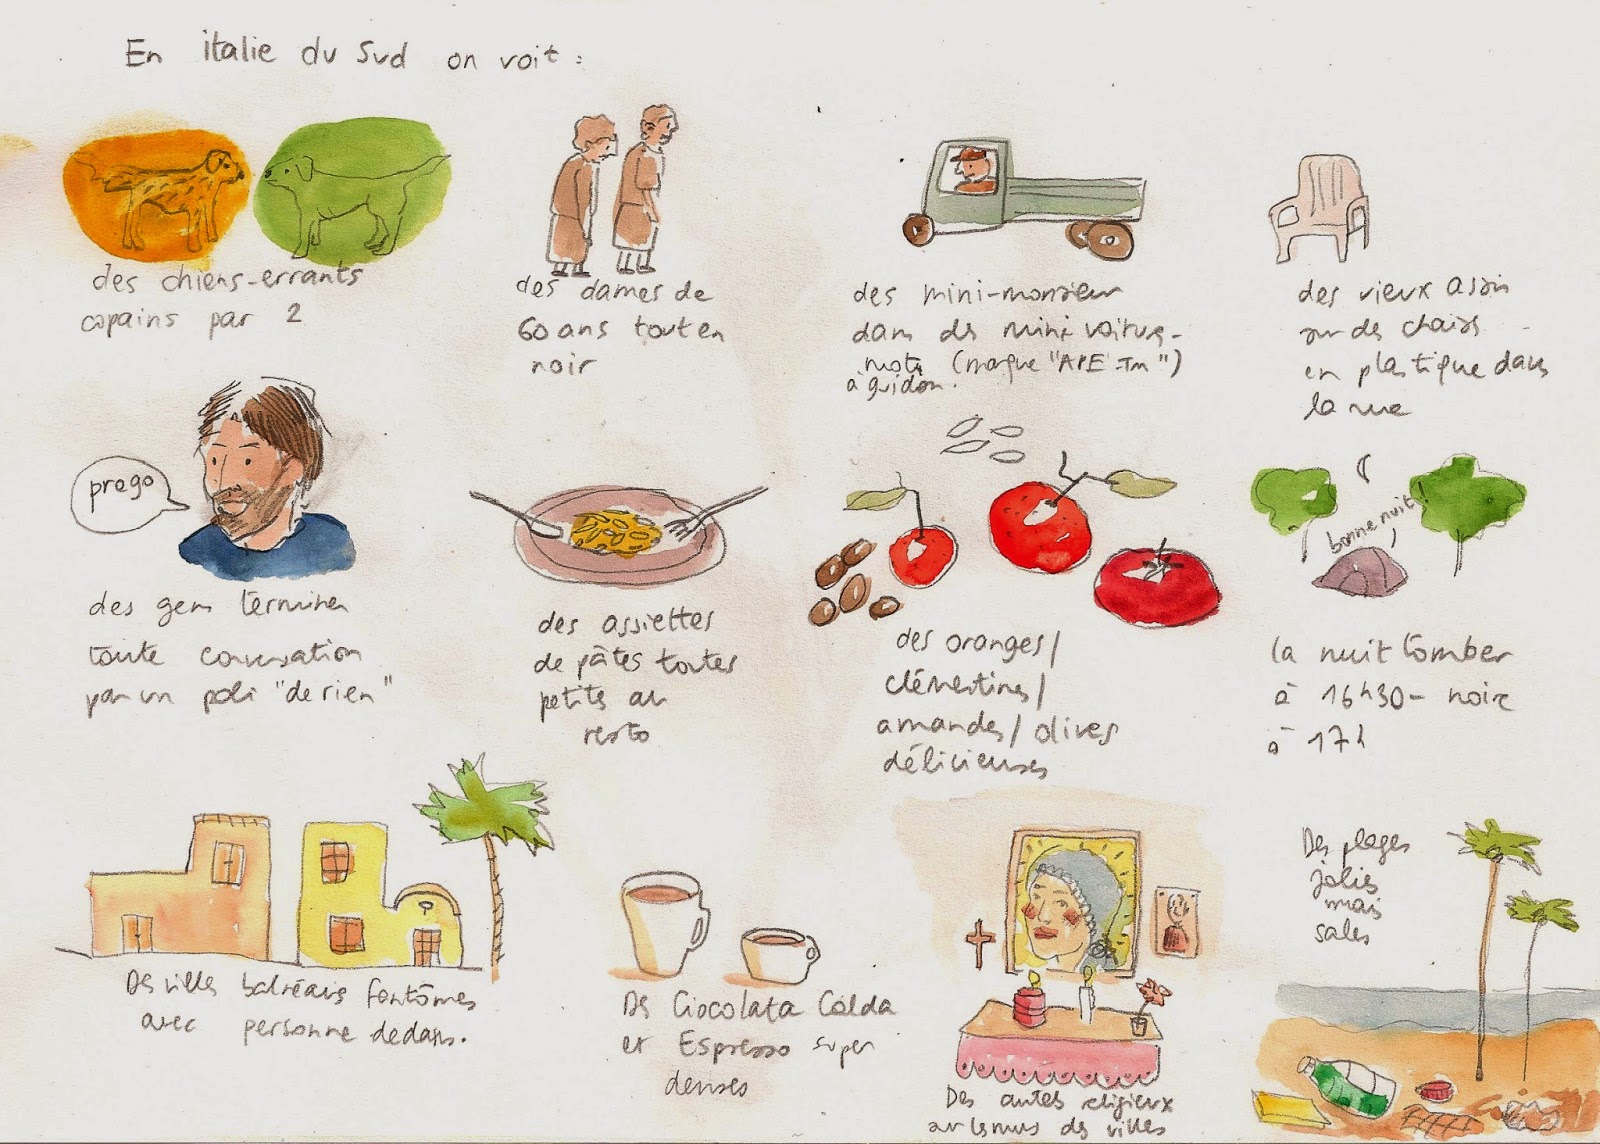 En italie du Sud on voit :
des chiens-errants
copains par 2
des dames de
60 ans tout en
noir
des mini-monsieur
dans des mini voitures-
moto (marque "APE -Tm")
à guidon.
des vieux assis
sur des chaises
en plastique dans
la rue
prego
des gens terminer
toute conversation
par un poli "de rien"
des assiettes
de pâtes toutes
petites au
resto
des oranges/
clémentines/
amandes/ olives
délicieuses
bonne nuit
la nuit tomber
à 16h30 - noire
à 17h
Des villes balnéaires fantômes
avec personne dedans.
Des Ciocolata Calda
et Espresso super
denses
Des autels religieux
des villes
Des plages
jolies
mais
sales